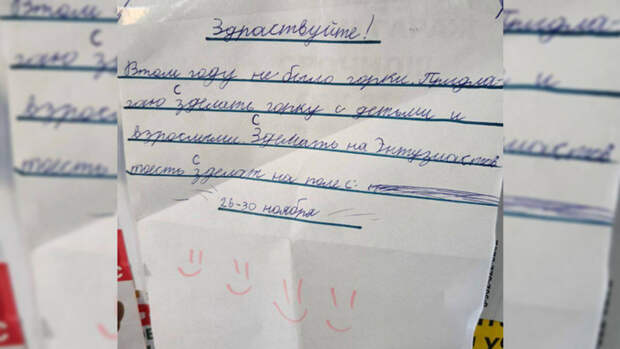 Здраствуйте!
Втом году не было горки. Придла-
с
гаю зделать горку с детьми и
с
взрослыми. Зделать на Энтузиастов
с
тоесть зделат на поле с.
26-30 ноября